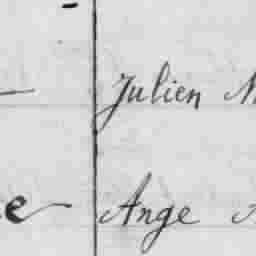 Julien
Ange